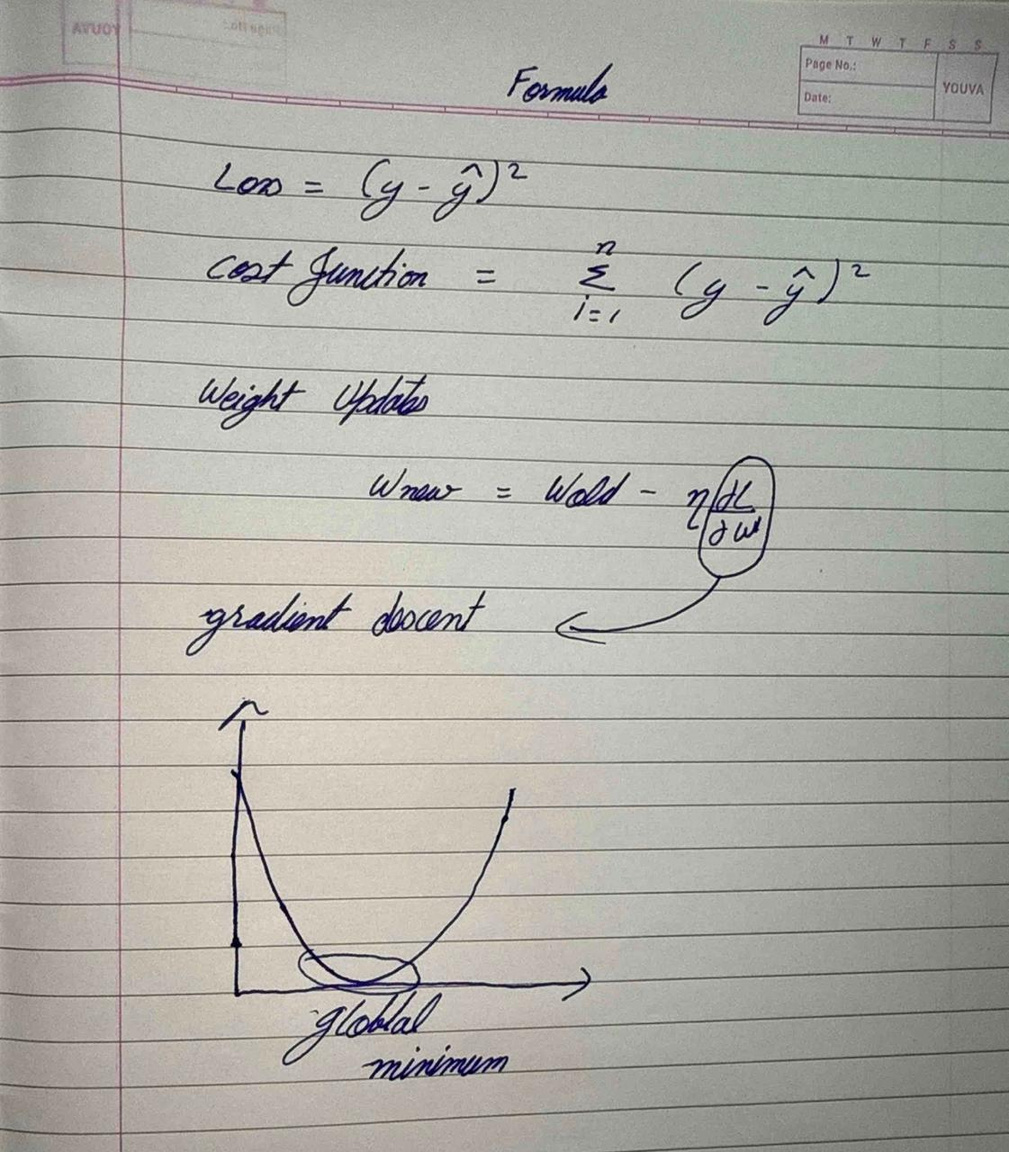 M T W T F S S
Page No.:
Date:
YOUVA
Formula
Loss = (y - ŷ)²
cost function = n Σ i=1 (y - ŷ)²
Weight Updates
Wnew = Wold - η ∂L/∂w
gradient descent
globlal
minimum